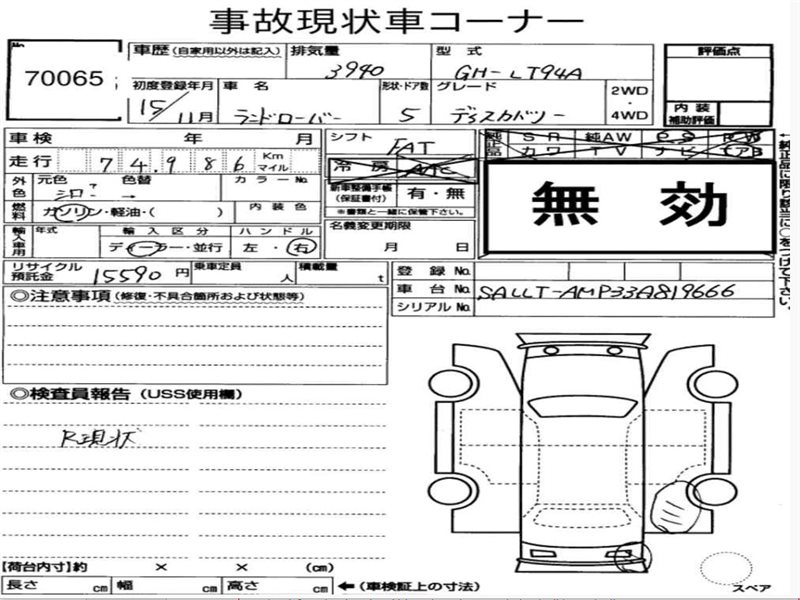 事故現状車コーナー
No 70065
車歴 (自家用以外は記入) 排気量 3940 型式 GH-LT94A 評価点
初度登録年月 15/11月 車名 ランドローバー 形状・ドア数 5 グレード ディスカバリー 2WD・4WD 内装補助評価
車検 年 月 シフト FAT 純正品 SR 純AW PS PW
カワ TV ナビ エアB
走行 7 4,9 8 6 Km マイル 冷房 AAC
外色 元色 シロ 色替 → カラーNo. 新車整備手帳 (保証書付) 有・無
※書類と一緒に保管下さい。
燃料 ガソリン・軽油・( ) 内装色
名義変更期限 月 日
無効
輸入車用 年式 輸入区分 ディーラー・並行 ハンドル 左・右
←純正品に限り該当に○をつけて下さい。
リサイクル預託金 15590円 乗車定員 人 積載量 t
登録No.
車台No. SALLT-AMP33A819666
シリアルNo.
◎注意事項 (修復・不具合箇所および状態等)
◎検査員報告 (USS使用欄)
R現状
【荷台内寸】約 × × (cm)
長さ cm 幅 cm 高さ cm ← (車検証上の寸法)
スペア